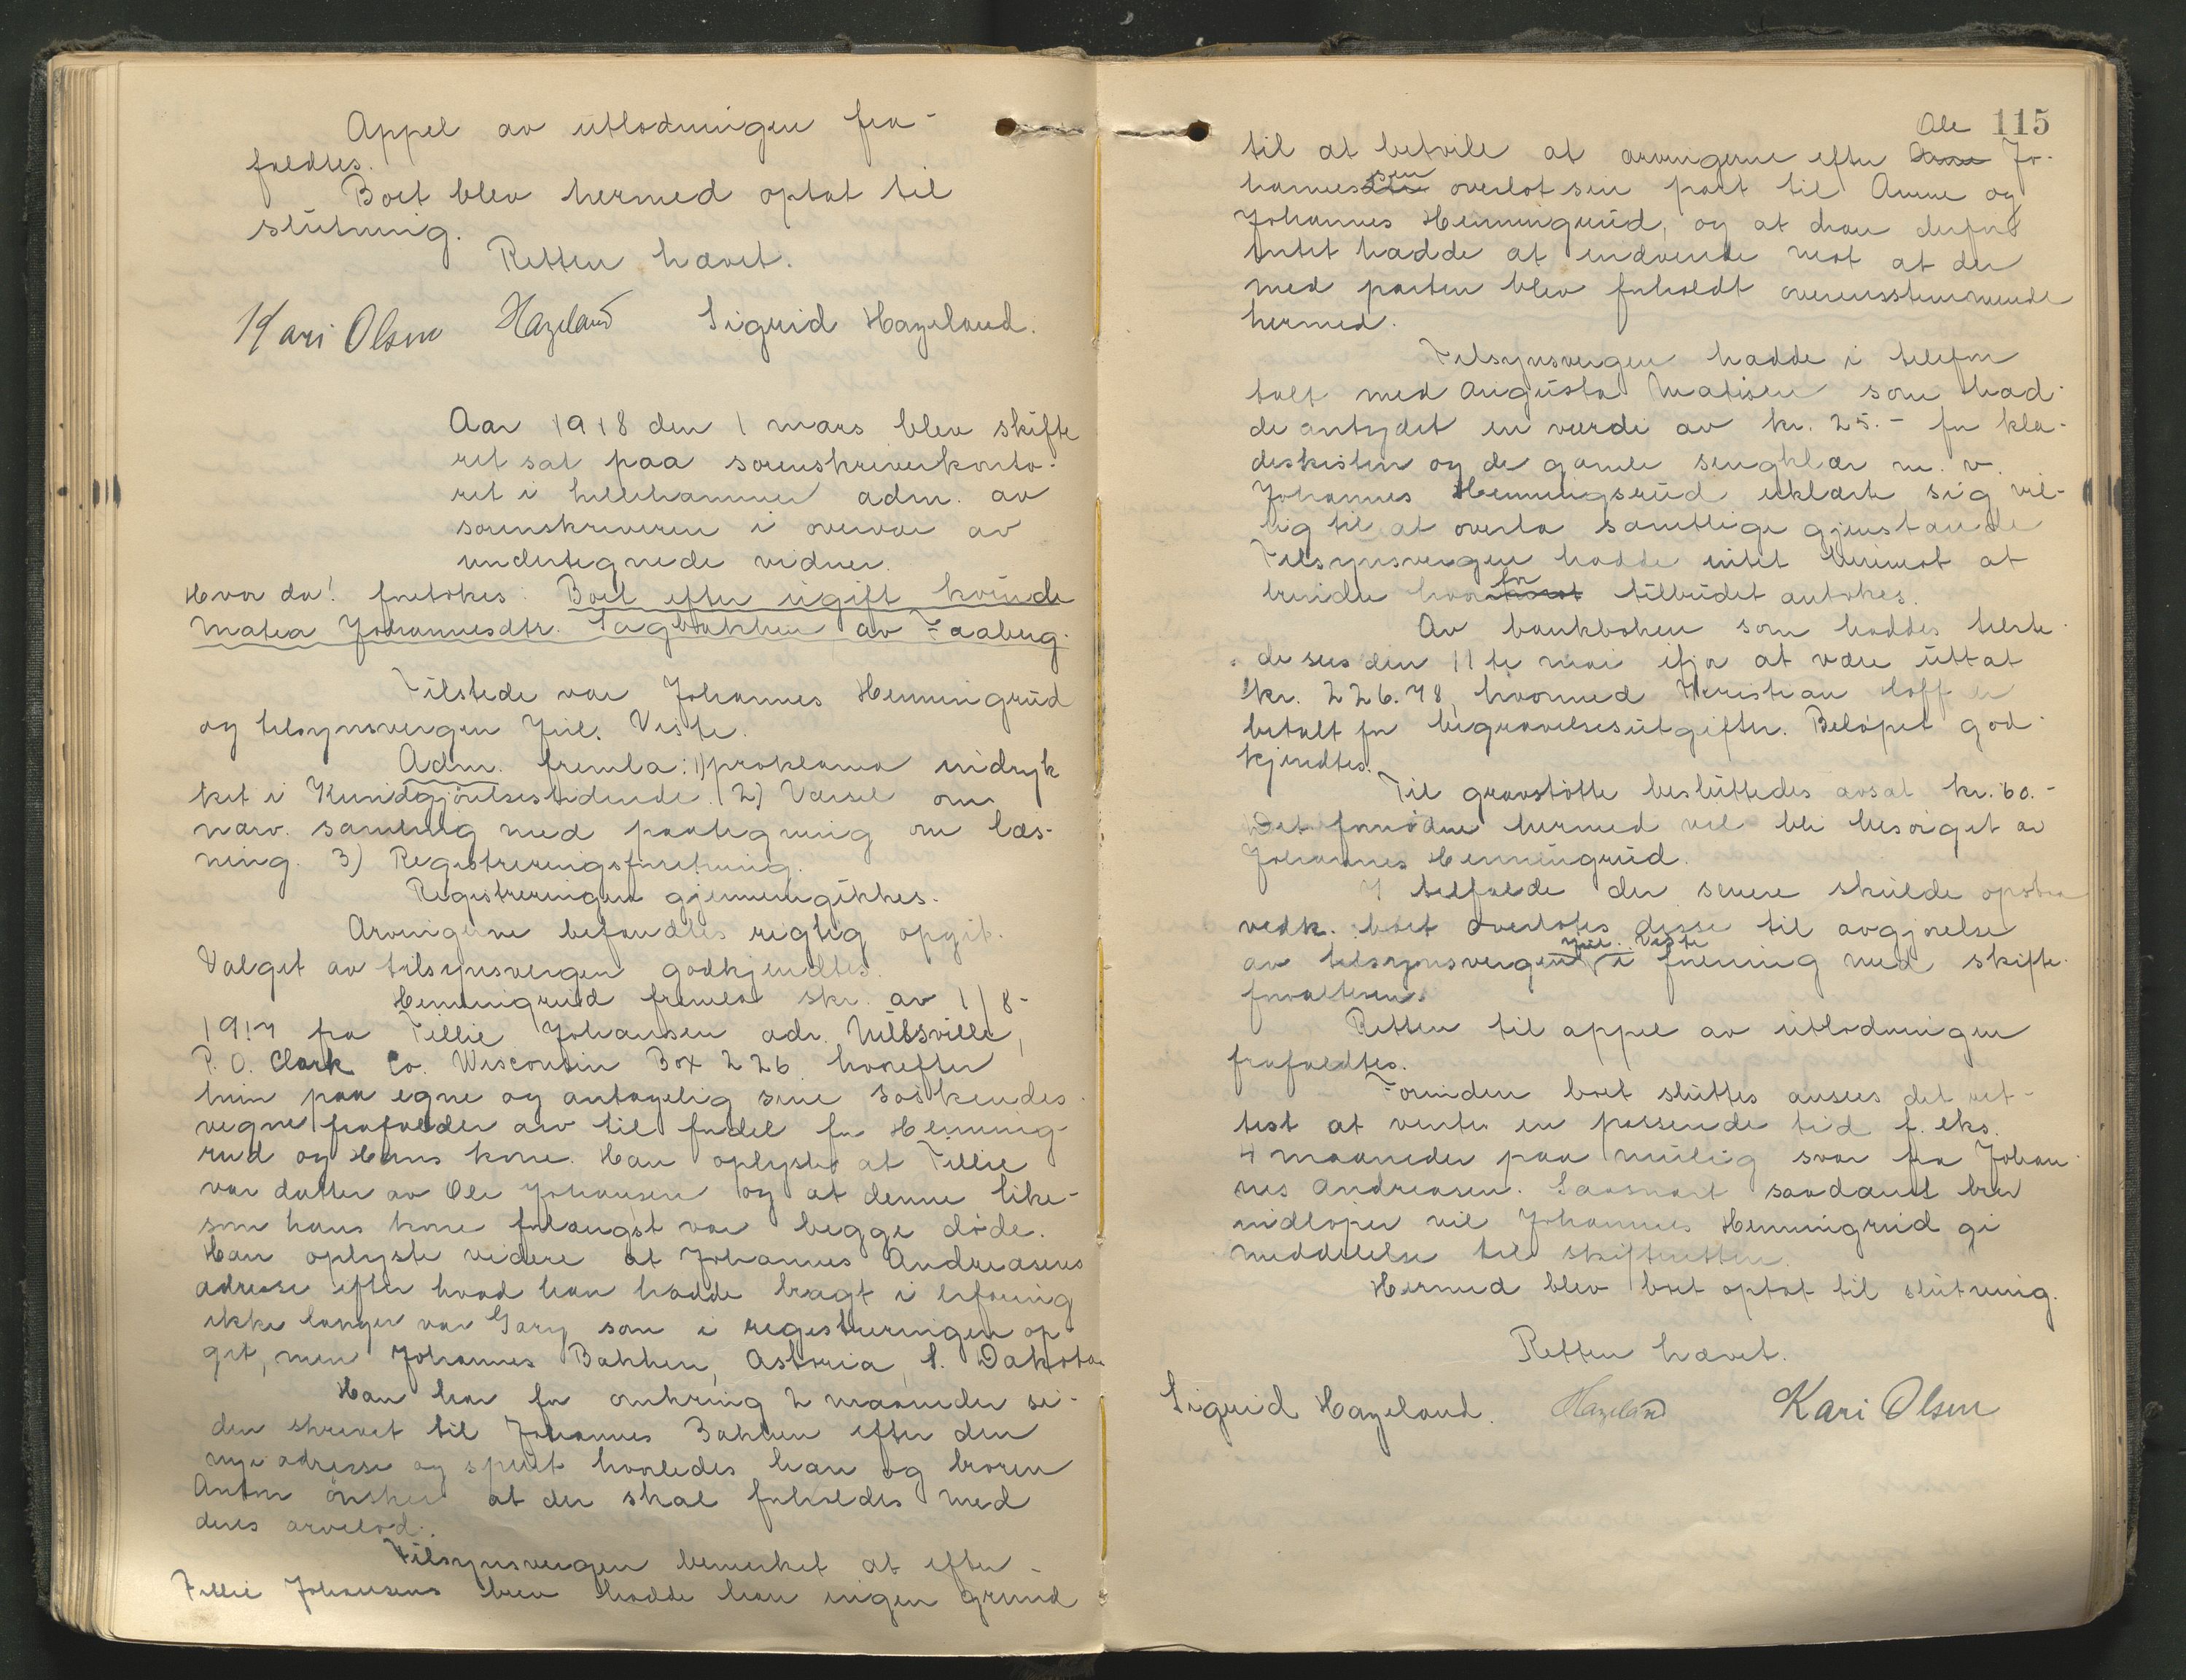 Appel av utlodningen fra-
faldtes.
Boet blev hermed optat til
slutning.
Retten hævet.
Kari Olsen Hazeland Sigrid Hazeland.
Aar 1918 den 1 mars blev skifte
ret sat paa sorenskriverkonto-
ret i Lillehammer adm. av
sorenskriveren i overvær av
undertegnede vidner.
Hvor da! foretokes: Boet efter ugift kvinde
Matea Johannesdtr. Sagbakken av Faaberg.
Tilstede var Johannes Henningrud
og tilsynsvergen Juil. Viste.
Adm. fremla: 1) proklama indryk
ket i Kundgjørelsestidende. 2) Varsel om
nærv. samling med paategning om læs-
ning. 3) Registreringsforretning.
Registreringen gjennemgikkes.
Arvingerne befandtes rigtig opgit.
Valget av tilsynsvergen godkjendtes.
Henningrud fremla skr. av 1/8-
1917 fra Tillie Johansen adr. Nillsville,
P.O. Clark Co. Wisconsin Box 226. hvorefter
hun paa egne og antagelig sine søskendes
vegne frafalder arv til fordel for Henning-
rud og Hans kone. Han oplyste at Tillie
var datter av Ole Johansen og at denne like-
som hans kone forlængst var begge døde.
Han oplyste videre at Johannes Andreasens
adresse efter hvad han hadde bragt i erfaring
ikke længer var Gary som i registreringen op-
git, men Johannes Bakken, Astoria, S. Dakota
Han har for omkring 2 maaneder si-
den skrevet til Johannes Bakken efter den
nye adresse og spurt hvorledes han og broren
Anton ønsker at der skal forholdes med
deres arvelod.
Tilsynsvergen bemerket at efter
Tillie Johansens brev hadde han ingen grund
115
Ole
til at betvile at arvingerne efter Jo-
sen
hannes overlot sin part til Anne og
Johannes Henningrud, og at han derfor
intet hadde at indvende mot at der
med parten blev forholdt overensstemmende
hermed.
Tilsynsvergen hadde i telefon
talt med Augusta Matisen som had-
de antydet en værdi av kr. 25.- for klæ-
deskisten og de gamle sengklær m. v.
Johannes Henningsrud erklærte sig vil-
lig til at overta samtlige gjenstande
Tilsynsvergen hadde intet herimot at
for
erindre hvor tilbudet antokes.
Av bankboken som haddes tilste-
de sees den 11te mai ifjor at være uttat
kr. 226.78, hvormed Kristian Hoff er
betalt for begravelsesutgifter. Beløpet god-
kjendtes.
Til gravstøtte besluttedes avsat kr. 60.-
Det fornødne hermed vil bli besørget av
Johannes Henningrud.
I tilfælde der senere skulde opstaa
vedk. boet overlates disse til avgjørelse
Juil. Viste
av tilsynsvergen i forening med skifte-
forvalteren.
Retten til appel av utlodningen
frafaldtes.
Forinden boet sluttes ansees det ret-
test at vente en passende tid f. eks.
4 maaneder paa mulig svar fra Johan-
nes Andreasen. Saasnart saadant brev
indløper vil Johannes Henningrud gi
meddelelse til skifteretten.
Hermed blev boet optat til slutning.
Retten hævet.
Sigrid Hazeland. Hazeland Kari Olsen